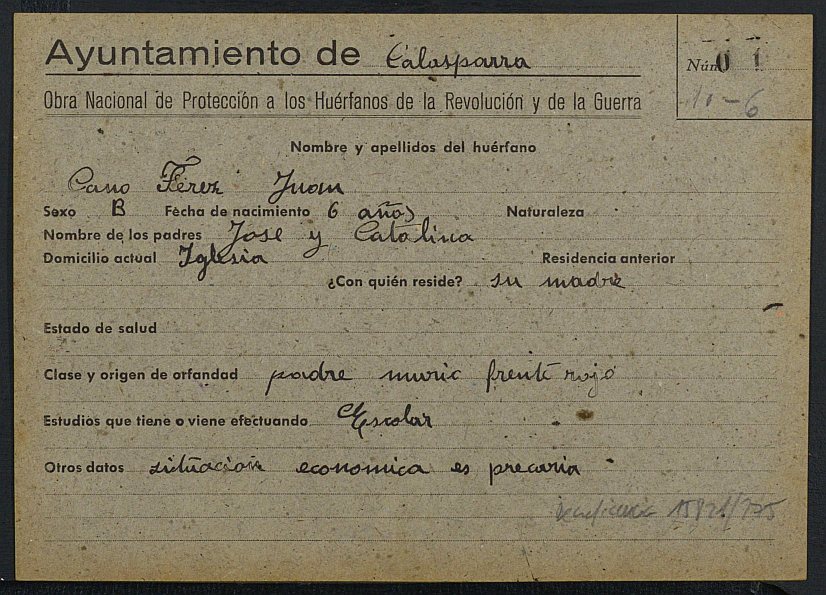 Ayuntamiento de Calasparra
Núm. 0 1
10-6
Obra Nacional de Protección a los Huérfanos de la Revolución y de la Guerra
Nombre y apellidos del huérfano
Cano Ferez Juan
Sexo B Fecha de nacimiento 6 años Naturaleza
Nombre de los padres Jose y Catalina
Domicilio actual Iglesia Residencia anterior
¿Con quién reside? su madre
Estado de salud
Clase y origen de orfandad padre murio frente rojo
Estudios que tiene o viene efectuando Escolar
Otros datos situacion economica es precaria